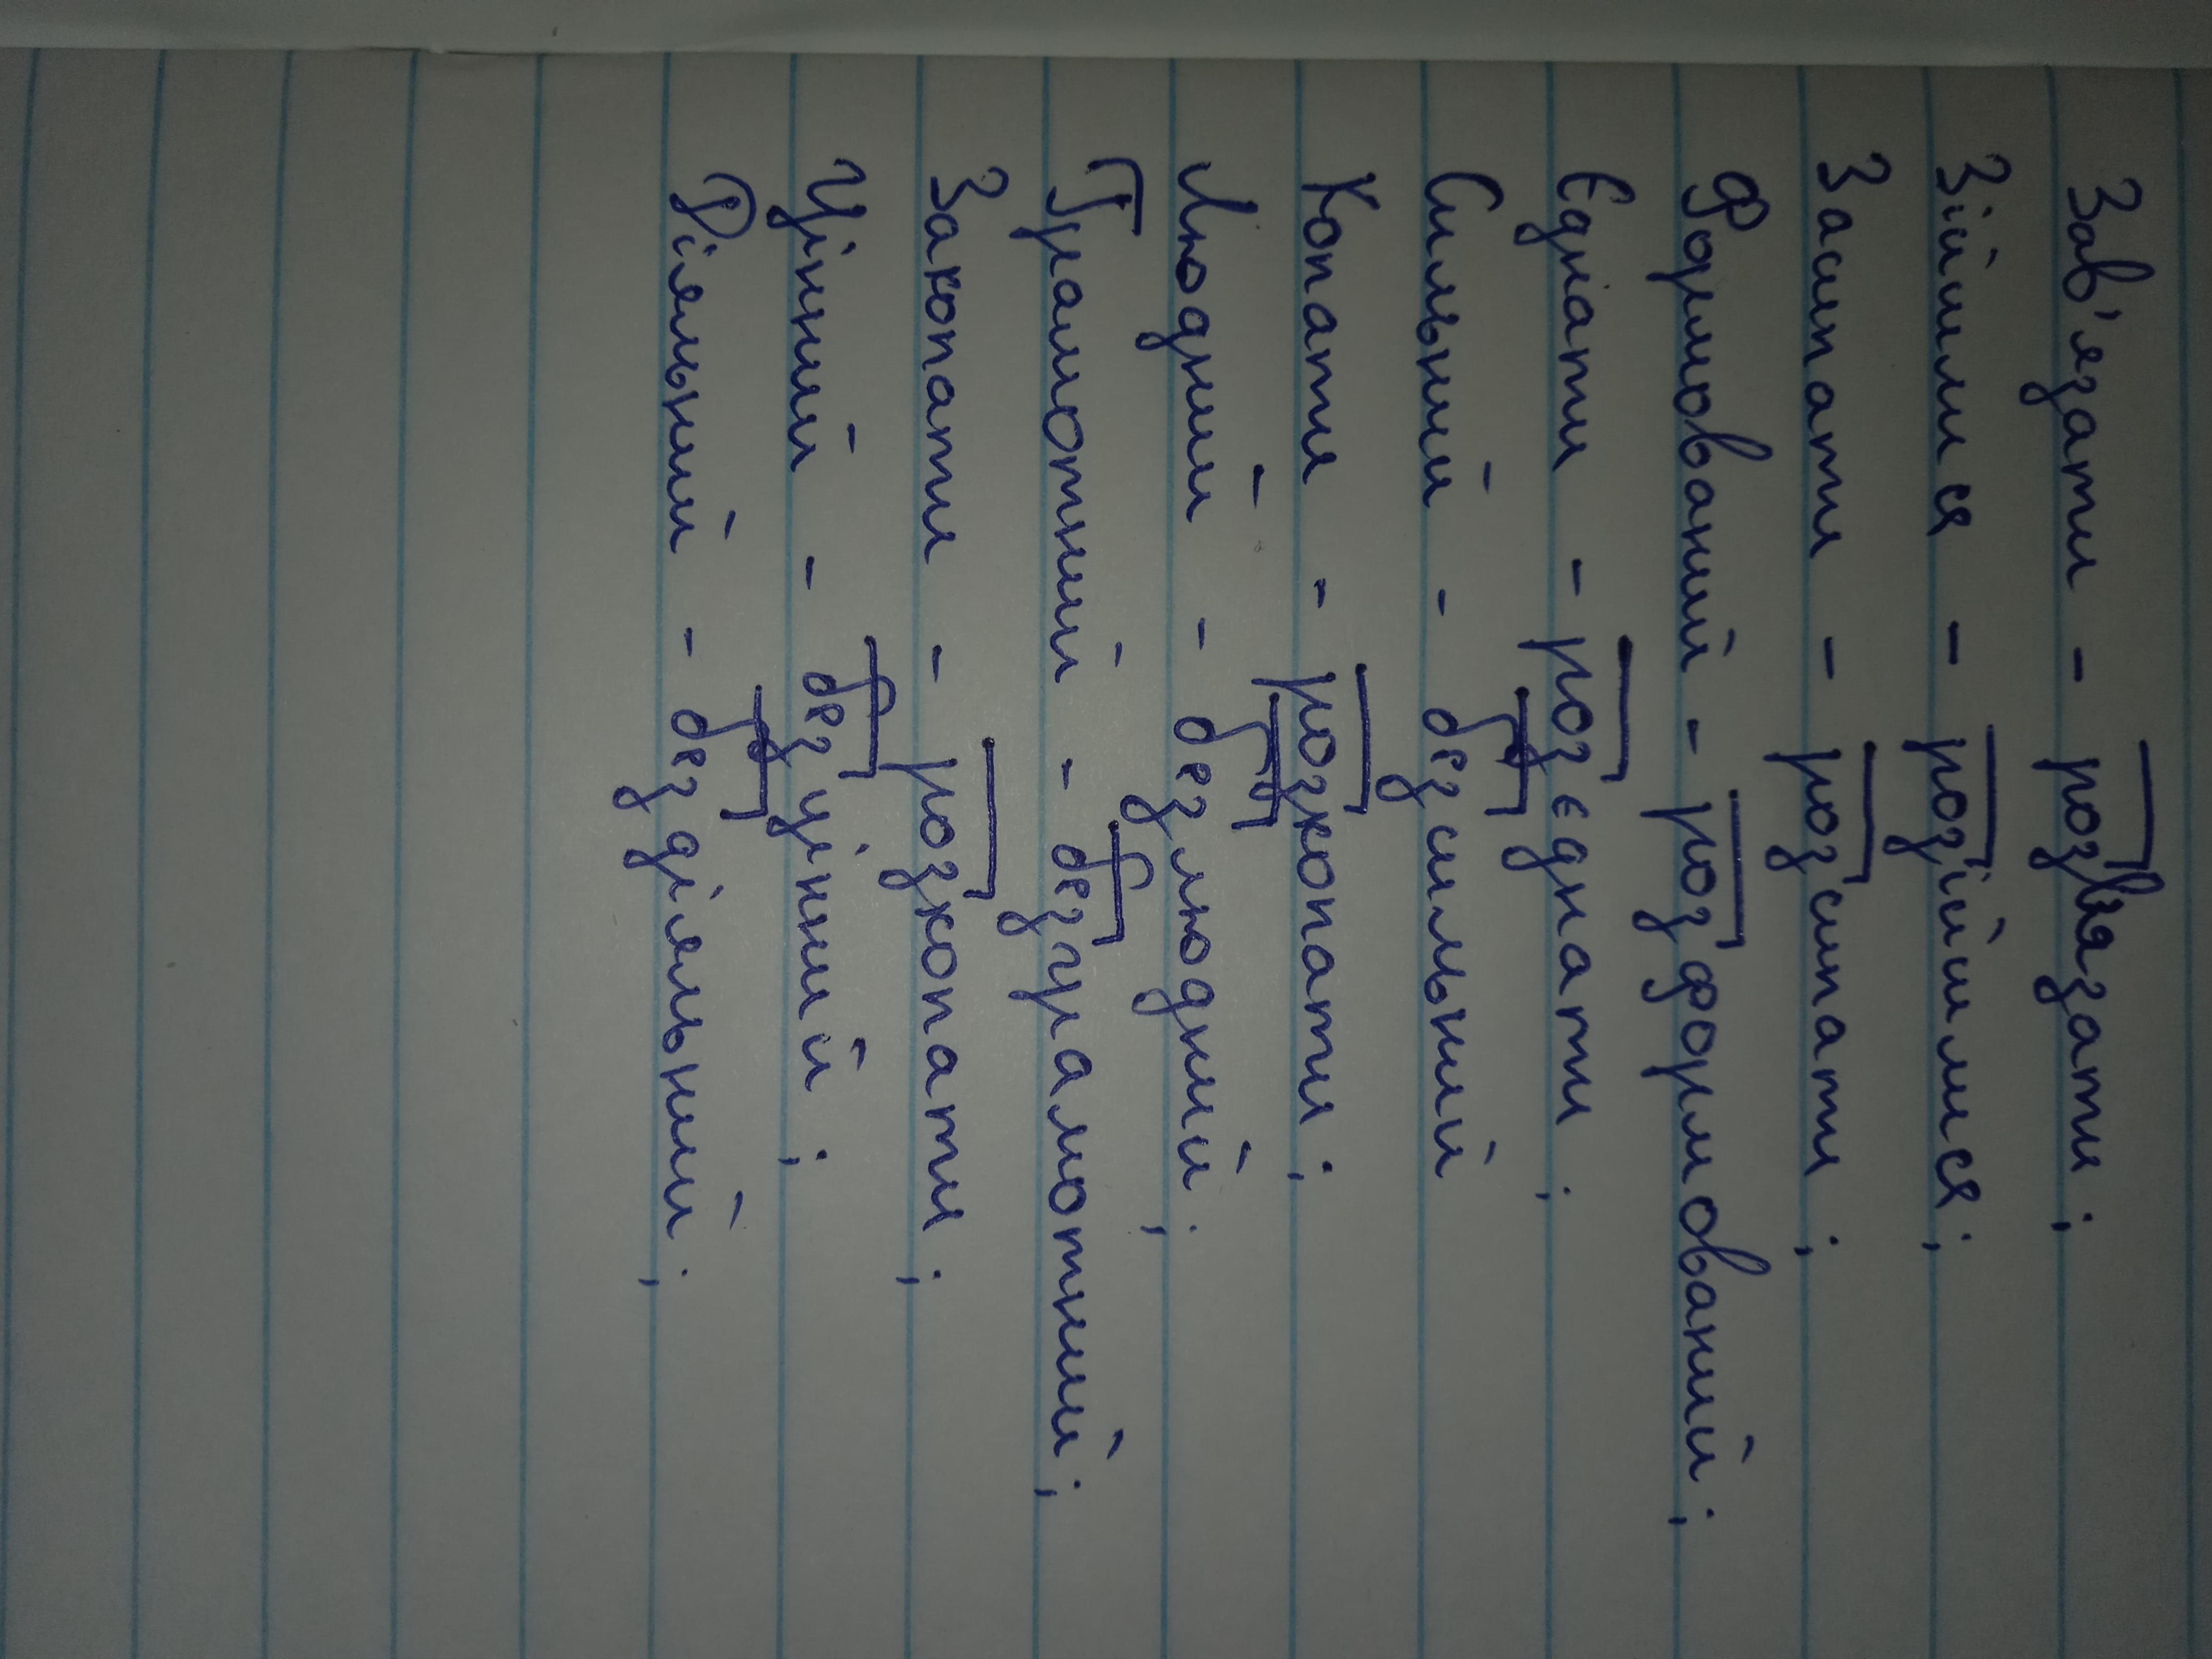 Зав'язати - розв'язати;
Зійшлися - розійшлися;
Засипати - розсипати;
Формований - розформований;
Єднати - роз'єднати;
Сильний - безсильний
Копати - розкопати;
Людний - безлюдний;
Грамотний - безграмотний;
Закопати - розкопати;
Цінний - безцінний;
Діяльний - бездіяльний;